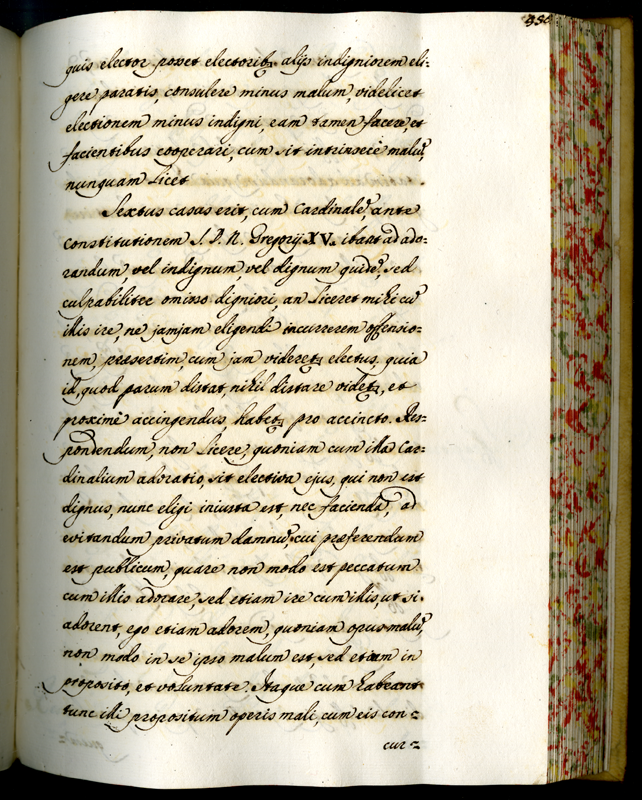 quis elector posset electoribꝫ alijs indigniorem eli:
gere paratis, consulere minus malum, videlicet
electionem minus indigni, eam tamen facere, et
facientibus cooperari, cum sit intrinsecè malũ,
nunquam licet.
Sextus casus erit, cum Cardinalẽs, ante
constitutionem S. D. N. Gregorij XV. ibant ad ado:
randum, vel indignum, vel dignum quidẽ, sed
culpabiliter omisso digniori, an liceret mihi cũ
illis ire, ne jamjam eligendi incurrerem offensio:
nem, præsertim, cum jam videretꝫ electus, quia
id, quod parum distat, nihil distare videtꝫ, et
proximè accingendus habetꝫ pro accincto. Res:
pondendum, non licere, quoniam cum illa Car:
dinalium adoratio, sit electiva ejus, qui non est
dignus, nunc eligi iniusta est, nec facienda, ad
evitandum privatum damnũ, cui præferendum
est publicum, quare non modo est peccatum
cum illis adorare, sed etiam ire cum illis, ut si
adorent, ego etiam adorem, quoniam opus malũ,
non modo in se ipso malum est, sed etiam in
proposito, et voluntate. Itaque cum habeant
tunc illi propositum operis mali, cum eis con:
cur: